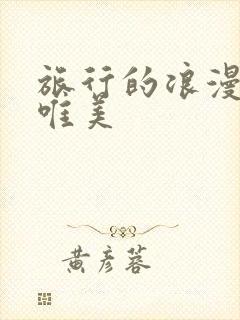 旅行的浪漫
唯美
黄彦蓉